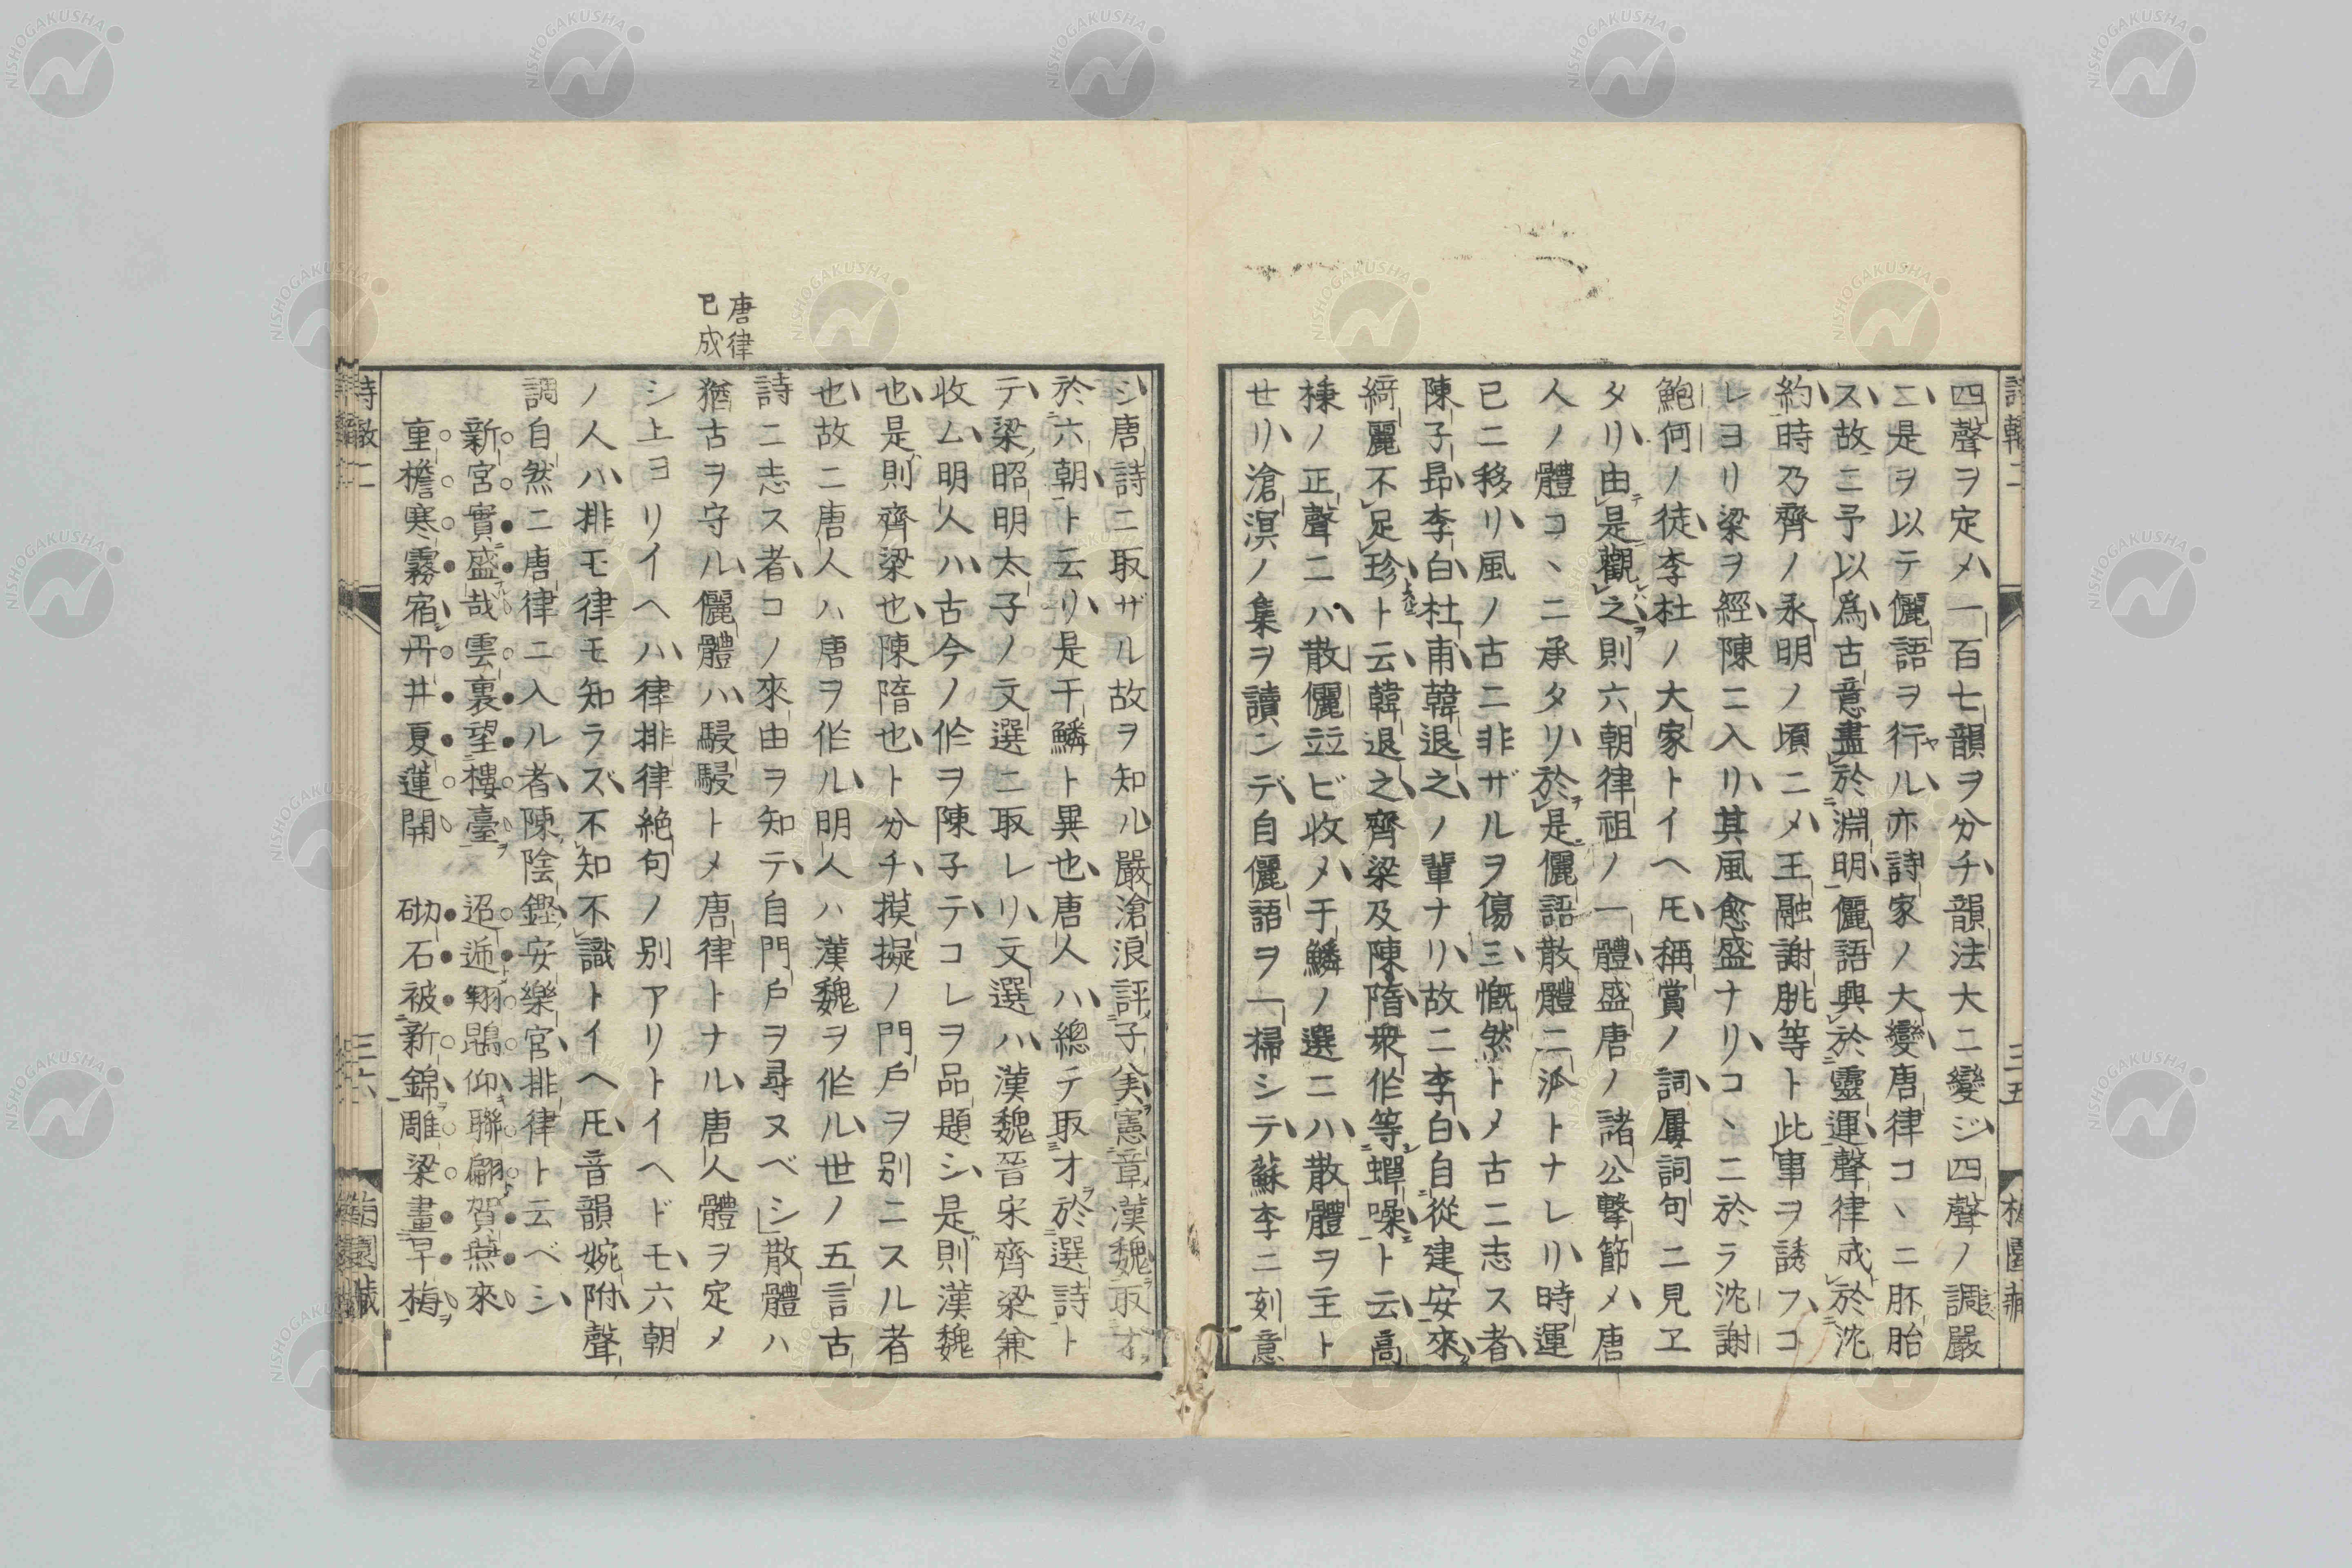 四聲ヲ定メ一百七韻ヲ分チ韻法大ニ變ジ四聲ノ調嚴
ニ是ヲ以テ儷語ヲ行ル亦詩家ノ大變唐律コヽニ胚胎
ス故ニ予以爲古意盡於淵明儷語興於靈運聲律成於沈
約時乃齊ノ永明ノ頃ニメ王融謝朓等ト此事ヲ誘フコ
レヨリ梁ヲ經陳ニ入リ其風愈盛ナリコヽニ於ラ沈謝
鮑何ノ徒李杜ノ大家トイヘ𪜈稱賞ノ詞屢詞句ニ見ヱ
タリ由是觀之則六朝律祖ノ一體盛唐ノ諸公擊節メ唐
人ノ體コヽニ承タリ於是儷語散體二派トナレリ時運
已ニ移リ風ノ古ニ非ザルヲ傷ミ慨然トメ古ニ志ス者
陳子昻李白杜甫韓退之ノ輩ナリ故ニ李白自從建安來
綺麗不足珍ト云韓退之齊梁及陳隋衆作等蟬噪ト云高
棅ノ正聲ニハ散儷竝ビ收メ于鱗ノ選ニハ散體ヲ主ト
セリ滄溟ノ集ヲ讀ンデ自儷語ヲ一掃シテ蘇李ニ刻意
シ唐詩ニ取ザル故ヲ知ル嚴滄浪評子美憲章漢魏取オ
於六朝ト云リ是于鱗ト異也唐人ハ總テ取オ於選詩ト
テ梁昭明太子ノ文選ニ取レリ文選ハ漢魏晉宋齊梁兼
收ム明人ハ古今ノ作ヲ陳子テコレヲ品題シ是則漢魏
也是則齊梁也陳隋也ト分チ摸擬ノ門戶ヲ別ニスル者
也故ニ唐人ハ唐ヲ作ル明人ハ漢魏ヲ作ル世ノ五言古
詩ニ志ス者コノ來由ヲ知テ自門戶ヲ尋ヌベシ散體ハ
唐律
已成
猶古ヲ守ル儷體ハ駸駸トメ唐律トナル唐人體ヲ定メ
シ上ヨリイヘハ律排律絶句ノ別アリトイヘドモ六朝
ノ人ハ排モ律モ知ラズ不知不識トイヘ𪜈音韻婉附聲
調自然ニ唐律ニ入ル者陳陰鏗安樂宮排律ト云ベシ
新宮實盛哉雲裏望樓臺 迢遞翔鵾仰聯翩賀燕來
重檐寒霧宿丹井夏蓮開 砌石被新錦雕梁畫早梅
三十六
三十五